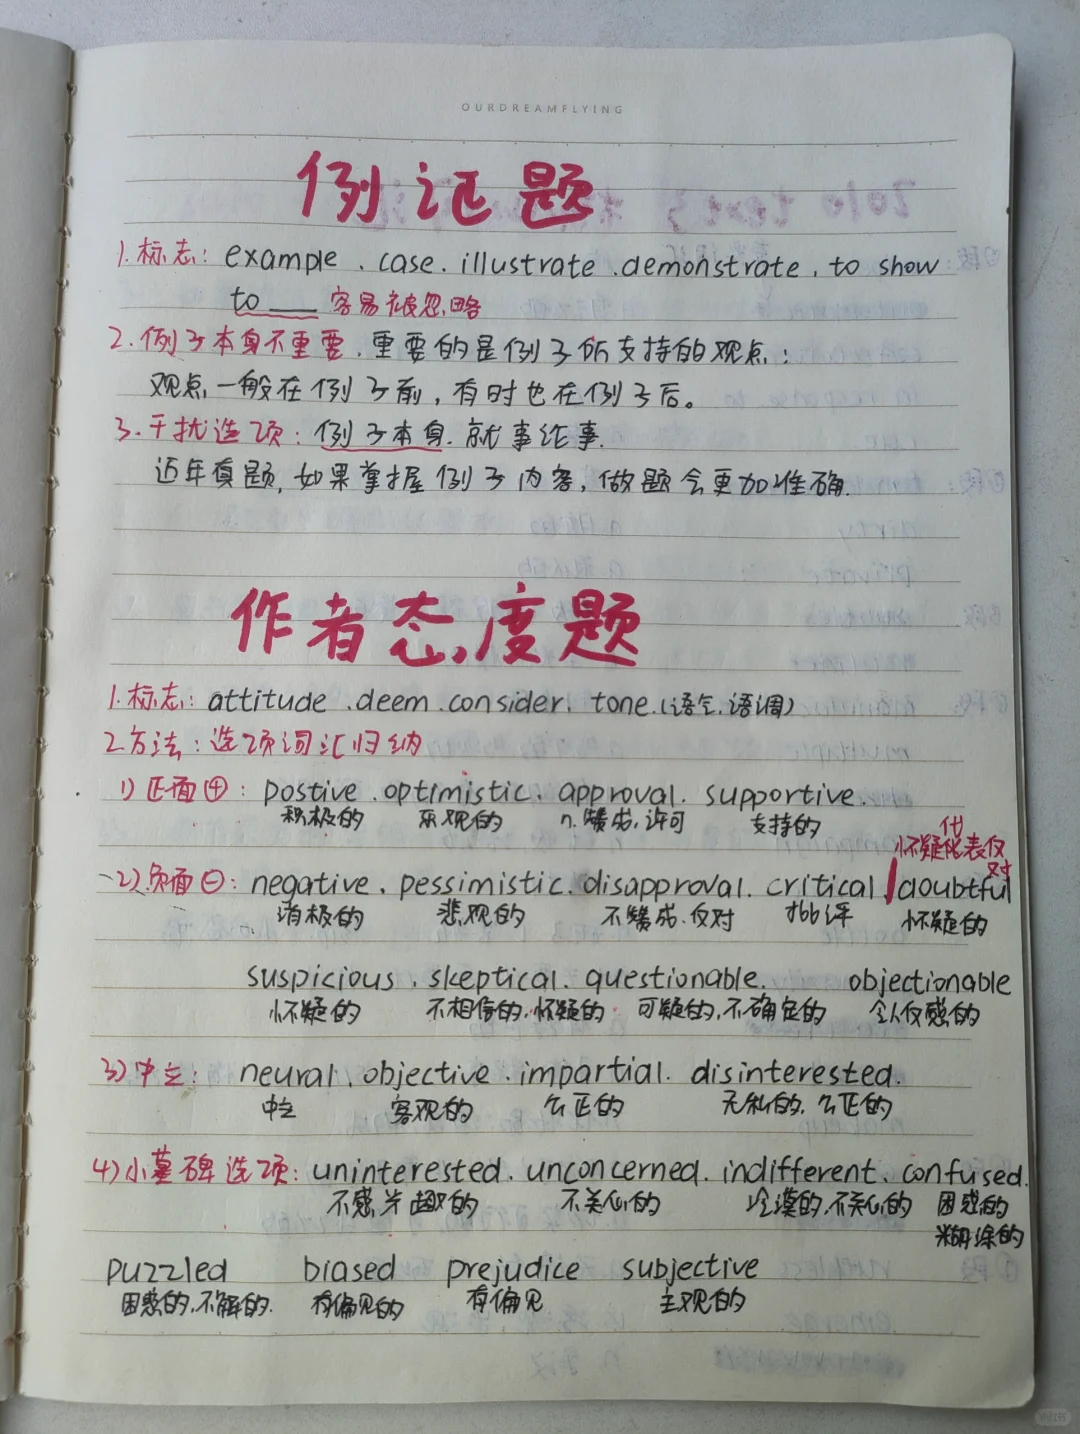 OURDREAMFLYING
例证题
1.标志: example . case . illustrate . demonstrate . to show
to ___ 容易被忽略
2.例子本身不重要,重要的是例子所支持的观点;
观点一般在例子前,有时也在例子后。
3.干扰选项:例子本身.就事论事.
近年真题,如果掌握例子内容,做题会更加准确.
作者态度题
1.标志: attitude . deem . consider . tone.(语气.语调)
2.方法:选项词汇归纳
1)正面⊕: postive . optimistic . approval . supportive .
积极的 乐观的 n.赞成,许可 支持的
怀疑化代表反对
2)负面⊖: negative . pessimistic . disapproval . critical . doubtful
消极的 悲观的 不赞成.反对 批评 怀疑的
suspicious . skeptical . questionable. objectionable
怀疑的 不相信的,怀疑的 可疑的,不确定的 令人反感的
3)中立: neural . objective . impartial . disinterested .
中立 客观的 公正的 无私的,公正的
4)小墓碑选项: uninterested . unconcerned . indifferent . confused .
不感兴趣的 不关心的 冷漠的,不关心的 困惑的
糊涂的
puzzled biased prejudice subjective
困惑的,不解的. 有偏见的 有偏见 主观的